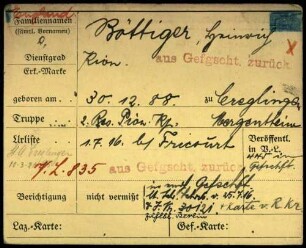 England
Familiennamen
(sämtl. Vornamen)
Böttiger Heinrich
Dienstgrad
Pion.
aus Gefgscht. zurück
Erk.-Marke
geboren am 30.12.88 zu Creglingen
Truppe 2. Res. Pion. Kp. Mergentheim
Urliste 1.7.16 bei Fricourt
Veröffentl.
in V.-L.
war in
Gefgsch.
V.L. 835 aus Gefgscht. zurück
in engl. Gefgsch.
Berichtigung nicht vermißt
+ Karte v. R. Kr.
Laz.-Karte:
Gef.-Karte: